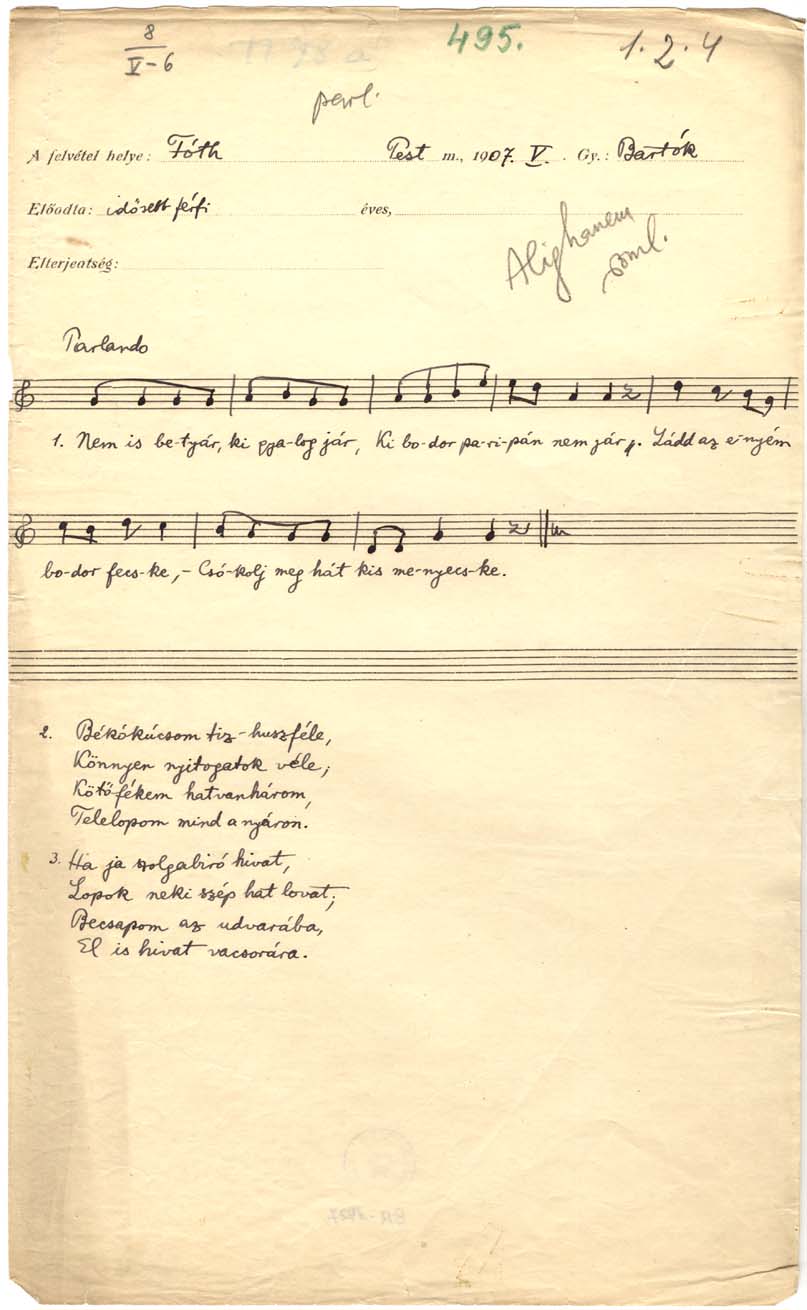 8
V-6
495.
1. 2. 4
parl.
A felvétel helye: Fóth Pest m., 1907. V. Gy.: Bartók
Előadta: idősebb férfi éves,
Alighanem
Elterjeatség:
Parlando
1. Nem is be-tyár, ki gya-log jár, Ki bo-dor pa-ri-pán nem jár. Ládd az e-nyém
bo-dor fecs-ke, - Csó-kolj meg hát kis me-nyecs-ke.
2. Békókúcsom tiz-huszféle,
Könnyen nyitogatok véle;
Kötőfékem hatvanhárom,
Telelopom mind a nyáron.
3. Ha ja szolgabiró hivat,
Lopok neki szép hat lovat;
Becsapom az udvarába,
El is hivat vacsorára.